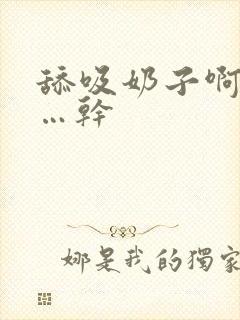 舔吸奶子啊
…幹
娜是我的獨家